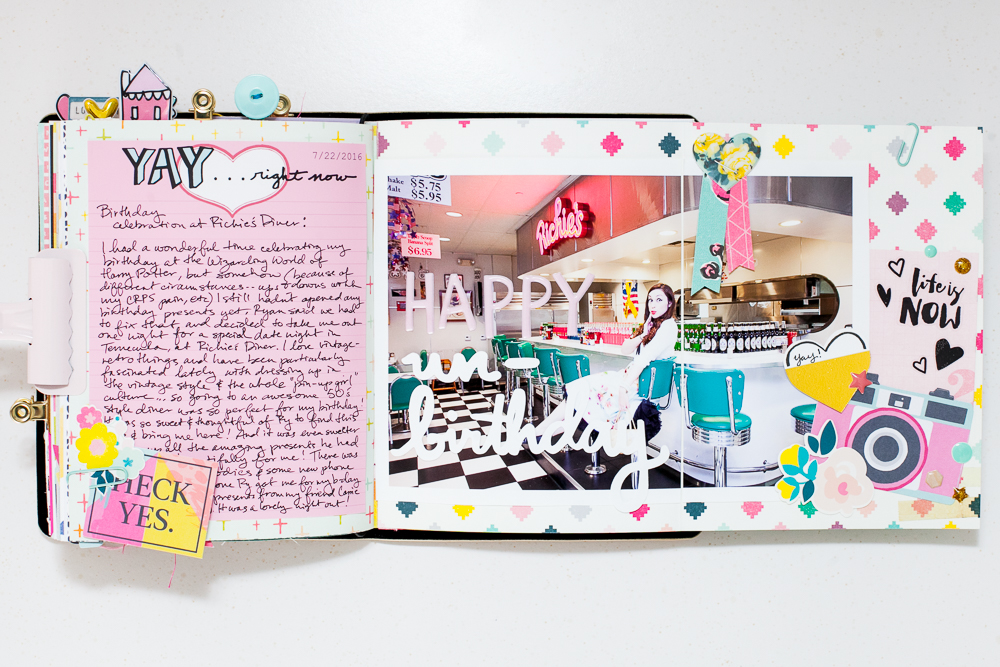 YAY...right now
7/22/2016
Birthday
celebration at Richie's Diner!
I had a wonderful time celebrating my
birthday at the Wizarding World of
Harry Potter, but somehow (because of
different cirumstances-- ups & downs with
my CRPS pain, etc) I still hadn't opened any
birthday presents yet. Ryan said we had
to fix that, and decided to take me out
one night for a special date night in
Temecula at Richie's Diner. I love vintage-
retro things, and have been particularly
fascinated lately with dressing up in
"the vintage style" & the whole "pin-up girl"
culture... so going to an awesome '50's
style diner was so perfect for my birthday
was so sweet & thoughtful of Ry to find this
& bring me here! And it was even sweeter
all the amazing presents he had
fully for me! There was
oodies & some new phone
one Ry got me for my bday
presents from my friend
It was a lovely night out!
HECK
YES.
Shake $5.75
Malt $5.95
Banana Split
$6.95
Richie's
HAPPY
un-
birthday
life is
NOW
yay!